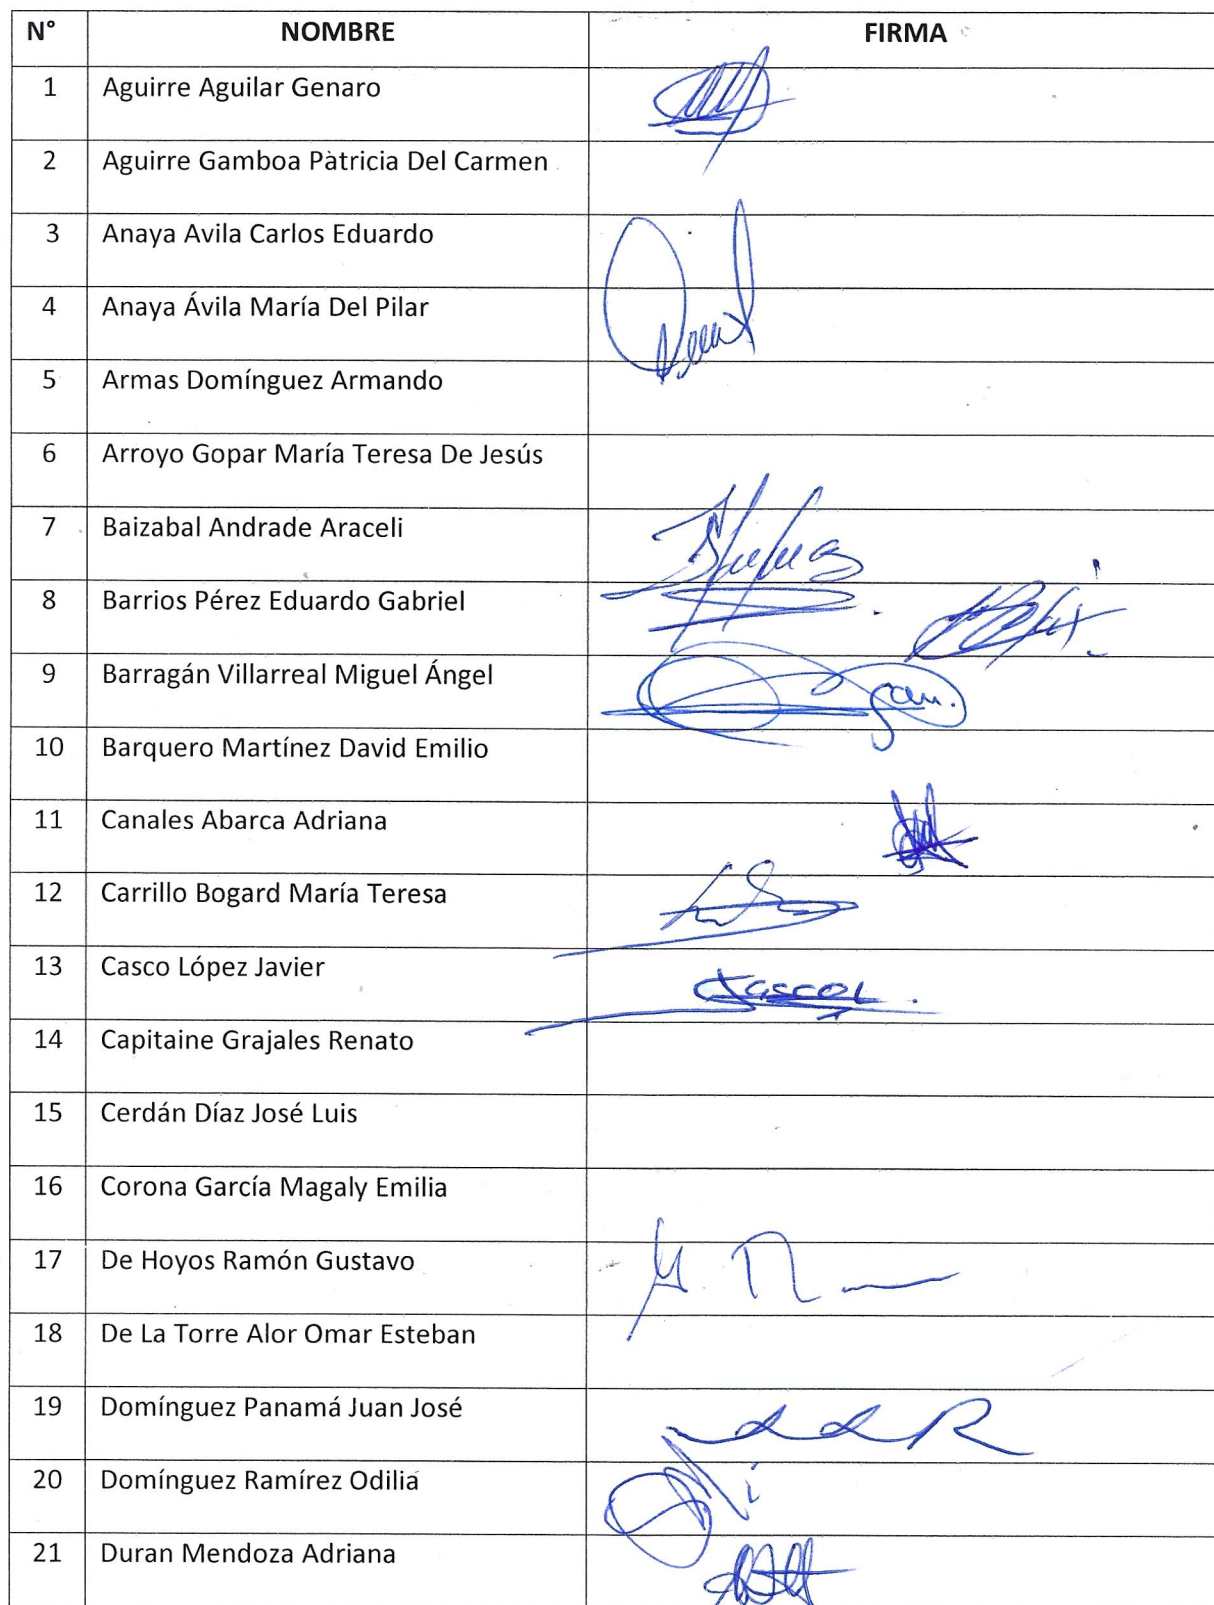 N° NOMBRE FIRMA
1 Aguirre Aguilar Genaro
2 Aguirre Gamboa Pàtricia Del Carmen
3 Anaya Avila Carlos Eduardo
4 Anaya Ávila María Del Pilar
5 Armas Domínguez Armando
6 Arroyo Gopar María Teresa De Jesús
7 Baizabal Andrade Araceli
8 Barrios Pérez Eduardo Gabriel
9 Barragán Villarreal Miguel Ángel
10 Barquero Martínez David Emilio
11 Canales Abarca Adriana
12 Carrillo Bogard María Teresa
13 Casco López Javier
14 Capitaine Grajales Renato
15 Cerdán Díaz José Luis
16 Corona García Magaly Emilia
17 De Hoyos Ramón Gustavo
18 De La Torre Alor Omar Esteban
19 Domínguez Panamá Juan José
20 Domínguez Ramírez Odilia
21 Duran Mendoza Adriana